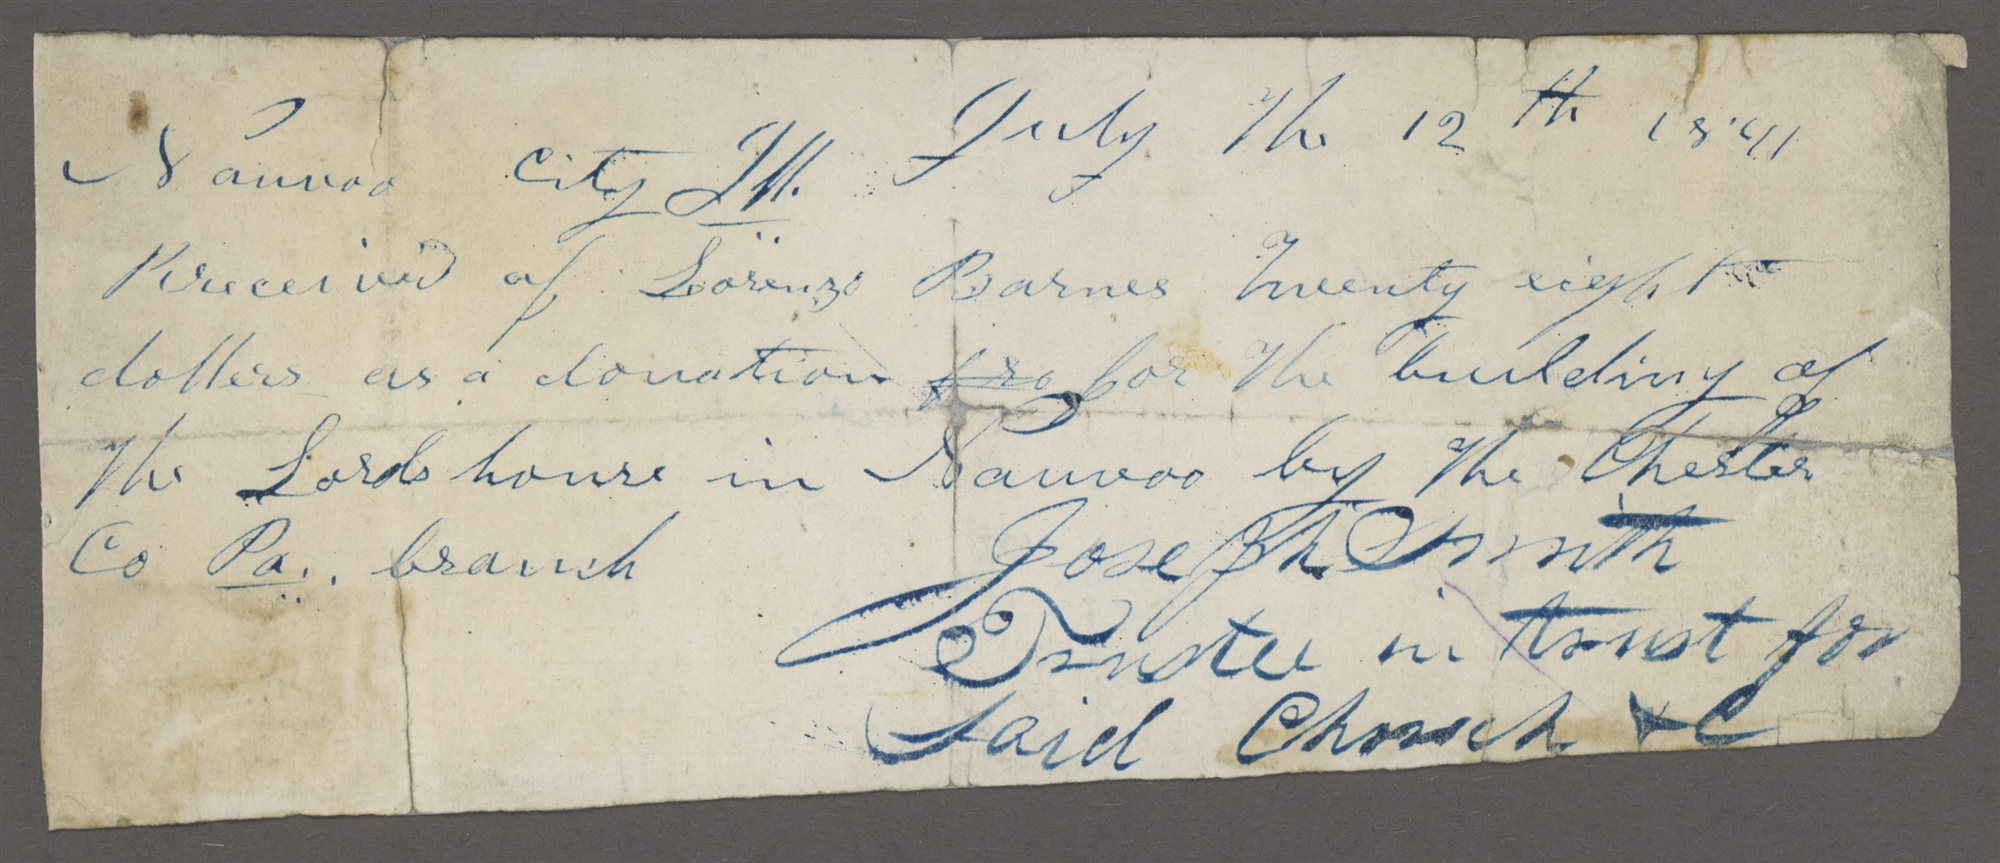 Nauvoo City Ill. July the 12th 1841
Received of Lorenzo Barnes Twenty eight
dollers as a donation fro for the building of
the Lords house in Nauvoo by the Chester
Co Pa.. branch Joseph Smith
Trustee in trust for
said Church &C